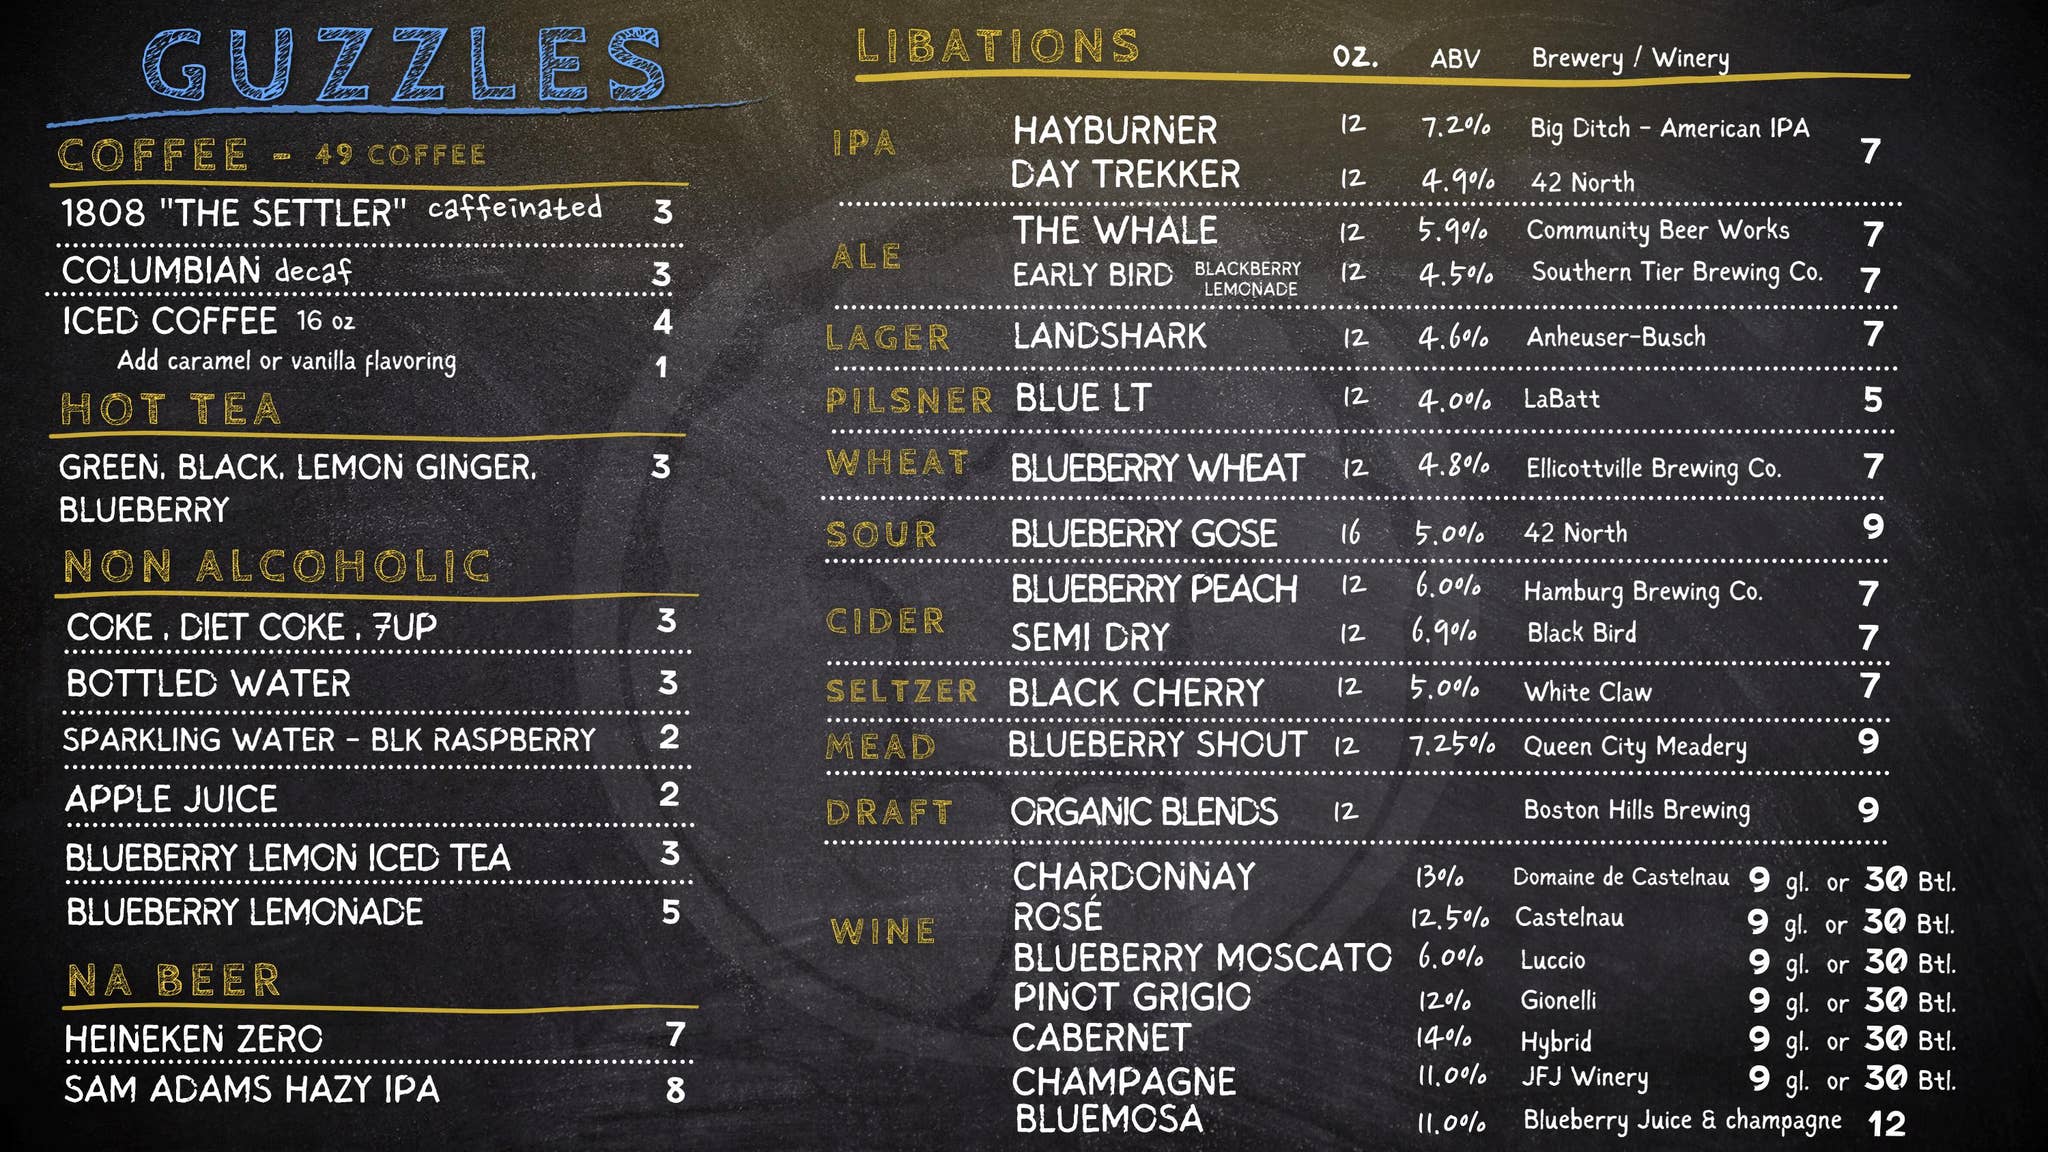 GUZZLES
COFFEE - 49 COFFEE
1808 "THE SETTLER" caffeinated 3
COLUMBIAN decaf 3
ICED COFFEE 16 oz 4
Add caramel or vanilla flavoring 1
HOT TEA
GREEN, BLACK, LEMON GINGER, 3
BLUEBERRY
NON ALCOHOLIC
COKE , DIET COKE , 7UP 3
BOTTLED WATER 3
SPARKLING WATER - BLK RASPBERRY 2
APPLE JUICE 2
BLUEBERRY LEMON ICED TEA 3
BLUEBERRY LEMONADE 5
NA BEER
HEINEKEN ZERO 7
SAM ADAMS HAZY IPA 8
LIBATIONS OZ. ABV Brewery / Winery
IPA
HAYBURNER 12 7.2% Big Ditch - American IPA 7
DAY TREKKER 12 4.9% 42 North
ALE
THE WHALE 12 5.9% Community Beer Works 7
EARLY BIRD BLACKBERRY LEMONADE 12 4.5% Southern Tier Brewing Co. 7
LAGER LANDSHARK 12 4.6% Anheuser-Busch 7
PILSNER BLUE LT 12 4.0% LaBatt 5
WHEAT BLUEBERRY WHEAT 12 4.8% Ellicottville Brewing Co. 7
SOUR BLUEBERRY GOSE 16 5.0% 42 North 9
CIDER
BLUEBERRY PEACH 12 6.0% Hamburg Brewing Co. 7
SEMI DRY 12 6.9% Black Bird 7
SELTZER BLACK CHERRY 12 5.0% White Claw 7
MEAD BLUEBERRY SHOUT 12 7.25% Queen City Meadery 9
DRAFT ORGANIC BLENDS 12 Boston Hills Brewing 9
WINE
CHARDONNAY 13% Domaine de Castelnau 9 gl. or 30 Btl.
ROSÉ 12.5% Castelnau 9 gl. or 30 Btl.
BLUEBERRY MOSCATO 6.0% Luccio 9 gl. or 30 Btl.
PINOT GRIGIO 12% Gionelli 9 gl. or 30 Btl.
CABERNET 14% Hybrid 9 gl. or 30 Btl.
CHAMPAGNE 11.0% JFJ Winery 9 gl. or 30 Btl.
BLUEMOSA 11.0% Blueberry Juice & champagne 12